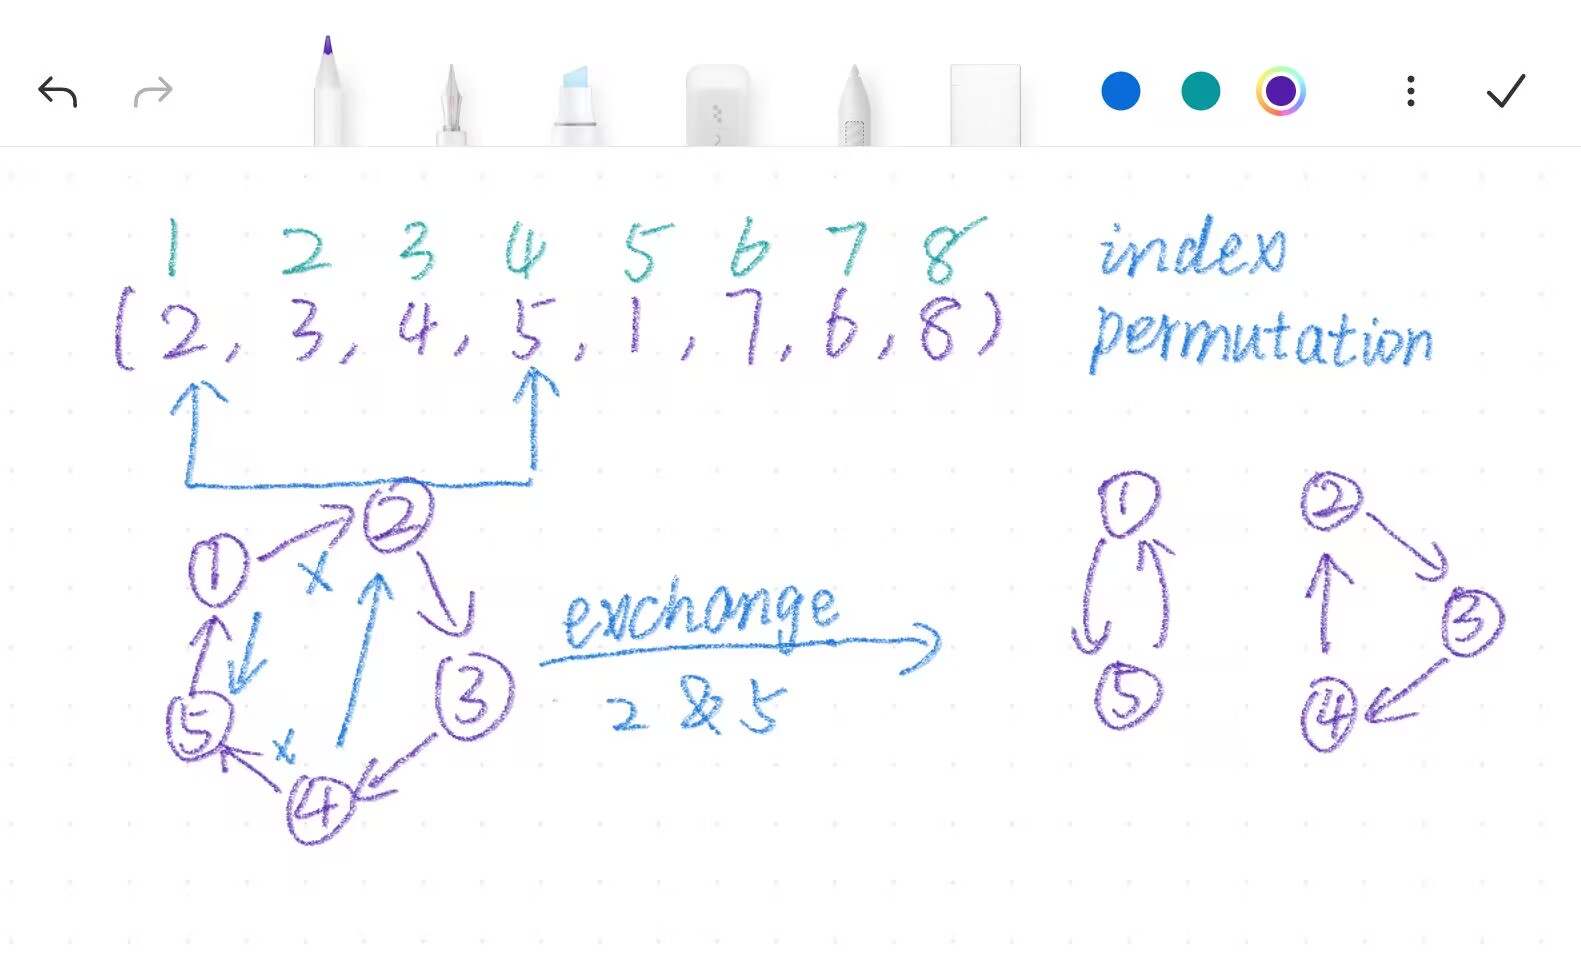 1 2 3 4 5 6 7 8 index
(2, 3, 4, 5, 1, 7, 6, 8) permutation
1 2 3 4 5
x x
exchange
2 & 5
1 5
2 3 4